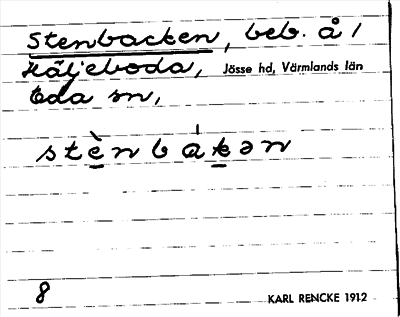 Stenbacken, beb. å /
Häljeboda, Jösse hd, Värmlands län
Eda sn,
stènbákən
8 KARL RENCKE 1912